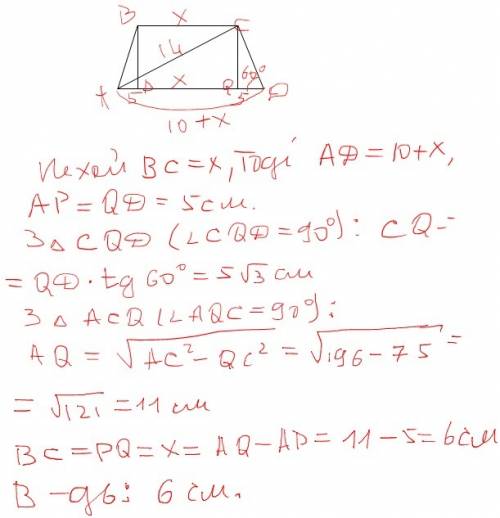 B x C
14
x
60°
A 5 P Q 5 D
10+x
Нехай BC = x, тоді AD = 10+x,
AP = QD = 5 см.
З △ CQD (∠CQD = 90°): CQ =
= QD · tg 60° = 5√3 см
З △ ACQ (∠AQC = 90°):
AQ = √AC² − QC² = √196 − 75 =
= √121 = 11 см
BC = PQ = x = AQ − AP = 11 − 5 = 6 см
В-дь: 6 см.